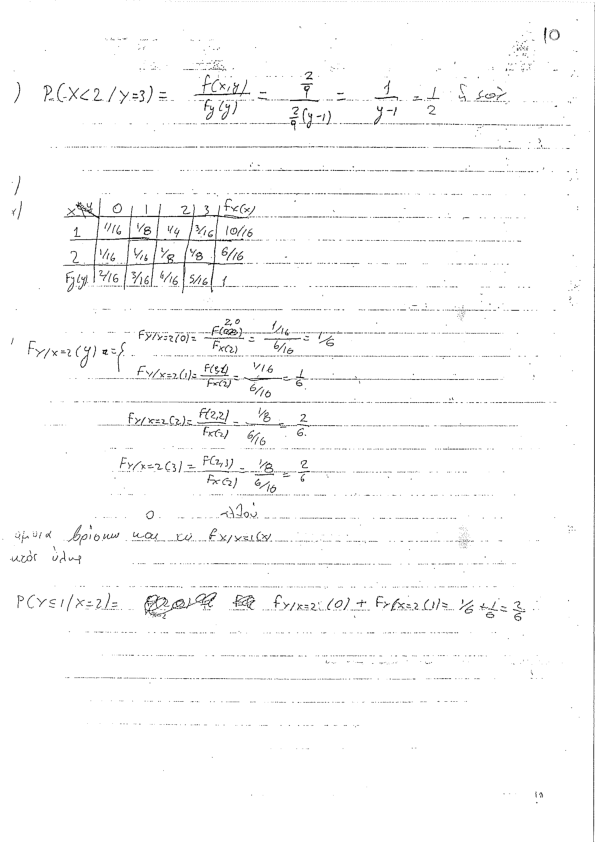 10
) P(X<2/Y=3) = f(x,y)/fy(y) = 2/9 / 2/9(y-1) = 1/y-1 = 1/2 ή 50%
)
x\y | 0 | 1 | 2 | 3 | fx(x)
1 | 1/16 | 1/8 | 1/4 | 3/16 | 10/16
2 | 1/16 | 1/16 | 1/8 | 1/8 | 6/16
Fy(y) | 2/16 | 3/16 | 6/16 | 5/16 | 1
FY/X=2(y) = { FY/X=2(0) = F(2,0)/Fx(2) = 1/16 / 6/16 = 1/6
FY/X=2(1) = F(2,1)/Fx(2) = 1/16 / 6/16 = 1/6
FY/X=2(2) = F(2,2)/Fx(2) = 1/8 / 6/16 = 2/6
FY/X=2(3) = F(2,3)/Fx(2) = 1/8 / 6/16 = 2/6
0 αλλού
όμοια βρίσκω και
κτός ύλης
P(Y≤1/X=2) = fY/X=2(0) + FY/X=2(1) = 1/6 + 1/6 = 2/6